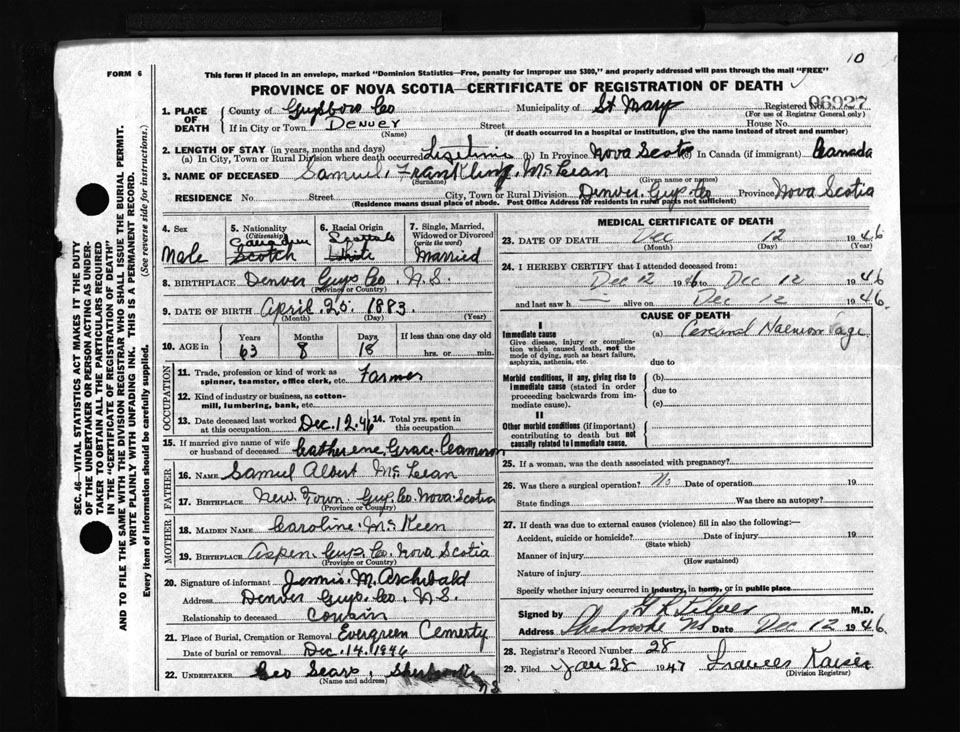 10
FORM 6
This form if placed in an envelope, marked "Dominion Statistics—Free, penalty for improper use $300," and properly addressed will pass through the mail "FREE"
PROVINCE OF NOVA SCOTIA—CERTIFICATE OF REGISTRATION OF DEATH
06927
SEC. 46—VITAL STATISTICS ACT MAKES IT THE DUTY
OF THE UNDERTAKER OR PERSON ACTING AS UNDER-
TAKER TO OBTAIN ALL THE PARTICULARS REQUIRED
IN THE "CERTIFICATE OF REGISTRATION OF DEATH"
AND TO FILE THE SAME WITH THE DIVISION REGISTRAR WHO SHALL ISSUE THE BURIAL PERMIT.
WRITE PLAINLY WITH UNFADING INK. THIS IS A PERMANENT RECORD.
Every item of information should be carefully supplied. (See reverse side for instructions.)
1. PLACE OF DEATH County of Guysboro Co Municipality of St Mary Registered No.
(For use of Registrar General only)
If in City or Town Denver Street House No.
(Name) (If death occurred in a hospital or institution, give the name instead of street and number)
2. LENGTH OF STAY (in years, months and days)
(a) In City, Town or Rural Division where death occurred (b) In Province Nova Scotia (c) In Canada (if immigrant) Canada
3. NAME OF DECEASED Samuel Frankling McLean
(Surname) (Given name or names)
RESIDENCE No. Street City, Town or Rural Division Denver Guys Co Province Nova Scotia
(Residence means usual place of abode. Post Office Address for residents in rural parts not sufficient)
4. Sex Male
5. Nationality (Citizenship) Canadian Scotch
6. Racial Origin
7. Single, Married, Widowed or Divorced (write the word) Married
8. BIRTHPLACE Denver Guys Co. N.S.
(Province or Country)
9. DATE OF BIRTH April. 25. 1883
(Month) (Day) (Year)
10. AGE in Years 63 Months 8 Days 18 If less than one day old hrs. or min.
OCCUPATION
11. Trade, profession or kind of work as spinner, teamster, office clerk, etc. Farmer
12. Kind of industry or business, as cotton-mill, lumbering, bank, etc.
13. Date deceased last worked at this occupation Dec. 12. 46 14. Total yrs. spent in this occupation.
15. If married give name of wife or husband of deceased Catherene Grace Cameron
FATHER
16. Name Samuel Albert McLean
17. Birthplace New Town. Guys. Co. Nova. Scotia
(Province or Country)
MOTHER
18. Maiden Name Caroline McKeen
19. Birthplace Aspen. Guys Co Nova Scotia
(Province or Country)
20. Signature of informant M. Archibald
Address Denver Guys. Co. N.S.
Relationship to deceased Cousin
21. Place of Burial, Cremation or Removal Evergreen Cemerty
Date of burial or removal Dec. 14. 1946
22. UNDERTAKER Geo Sears, N.S
(Name and address)
MEDICAL CERTIFICATE OF DEATH
23. DATE OF DEATH Dec 12 1946
(Month) (Day) (Year)
24. I HEREBY CERTIFY that I attended deceased from:
Dec 12 1946 to Dec 12 1946
and last saw h alive on Dec 12 1946.
CAUSE OF DEATH
I
Immediate cause (a)
Give disease, injury or complication which caused death, not the mode of dying, such as heart failure, asphyxia, asthenia, etc. due to
Morbid conditions, if any, giving rise to immediate cause (stated in order proceeding backwards from immediate cause). (b)
due to
(c)
II
Other morbid conditions (if important) contributing to death but not causally related to immediate cause.
25. If a woman, was the death associated with pregnancy?
26. Was there a surgical operation? No Date of operation 19
State findings Was there an autopsy?
27. If death was due to external causes (violence) fill in also the following:—
Accident, suicide or homicide? Date of injury 19
(State which)
Manner of injury
(How sustained)
Nature of injury
Specify whether injury occurred in industry, in home, or in public place
Signed by M.D.
Address Sherbrooke NS Date Dec 12 1946.
28. Registrar's Record Number 28
29. Filed Jan 28 1947 Frances Kaiser
(Division Registrar)